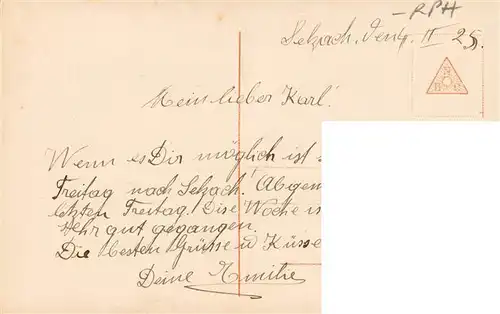 -RPH
Selzach, Deng. II 25.
Mein lieber Karl!
Wenn es Dir möglich ist
Freitag nach Selzach! Abgem
letzten Freitag! Dise Woche is
sehr gut gegangen.
Die besten Grüsse u Küsse
Deine Emilie